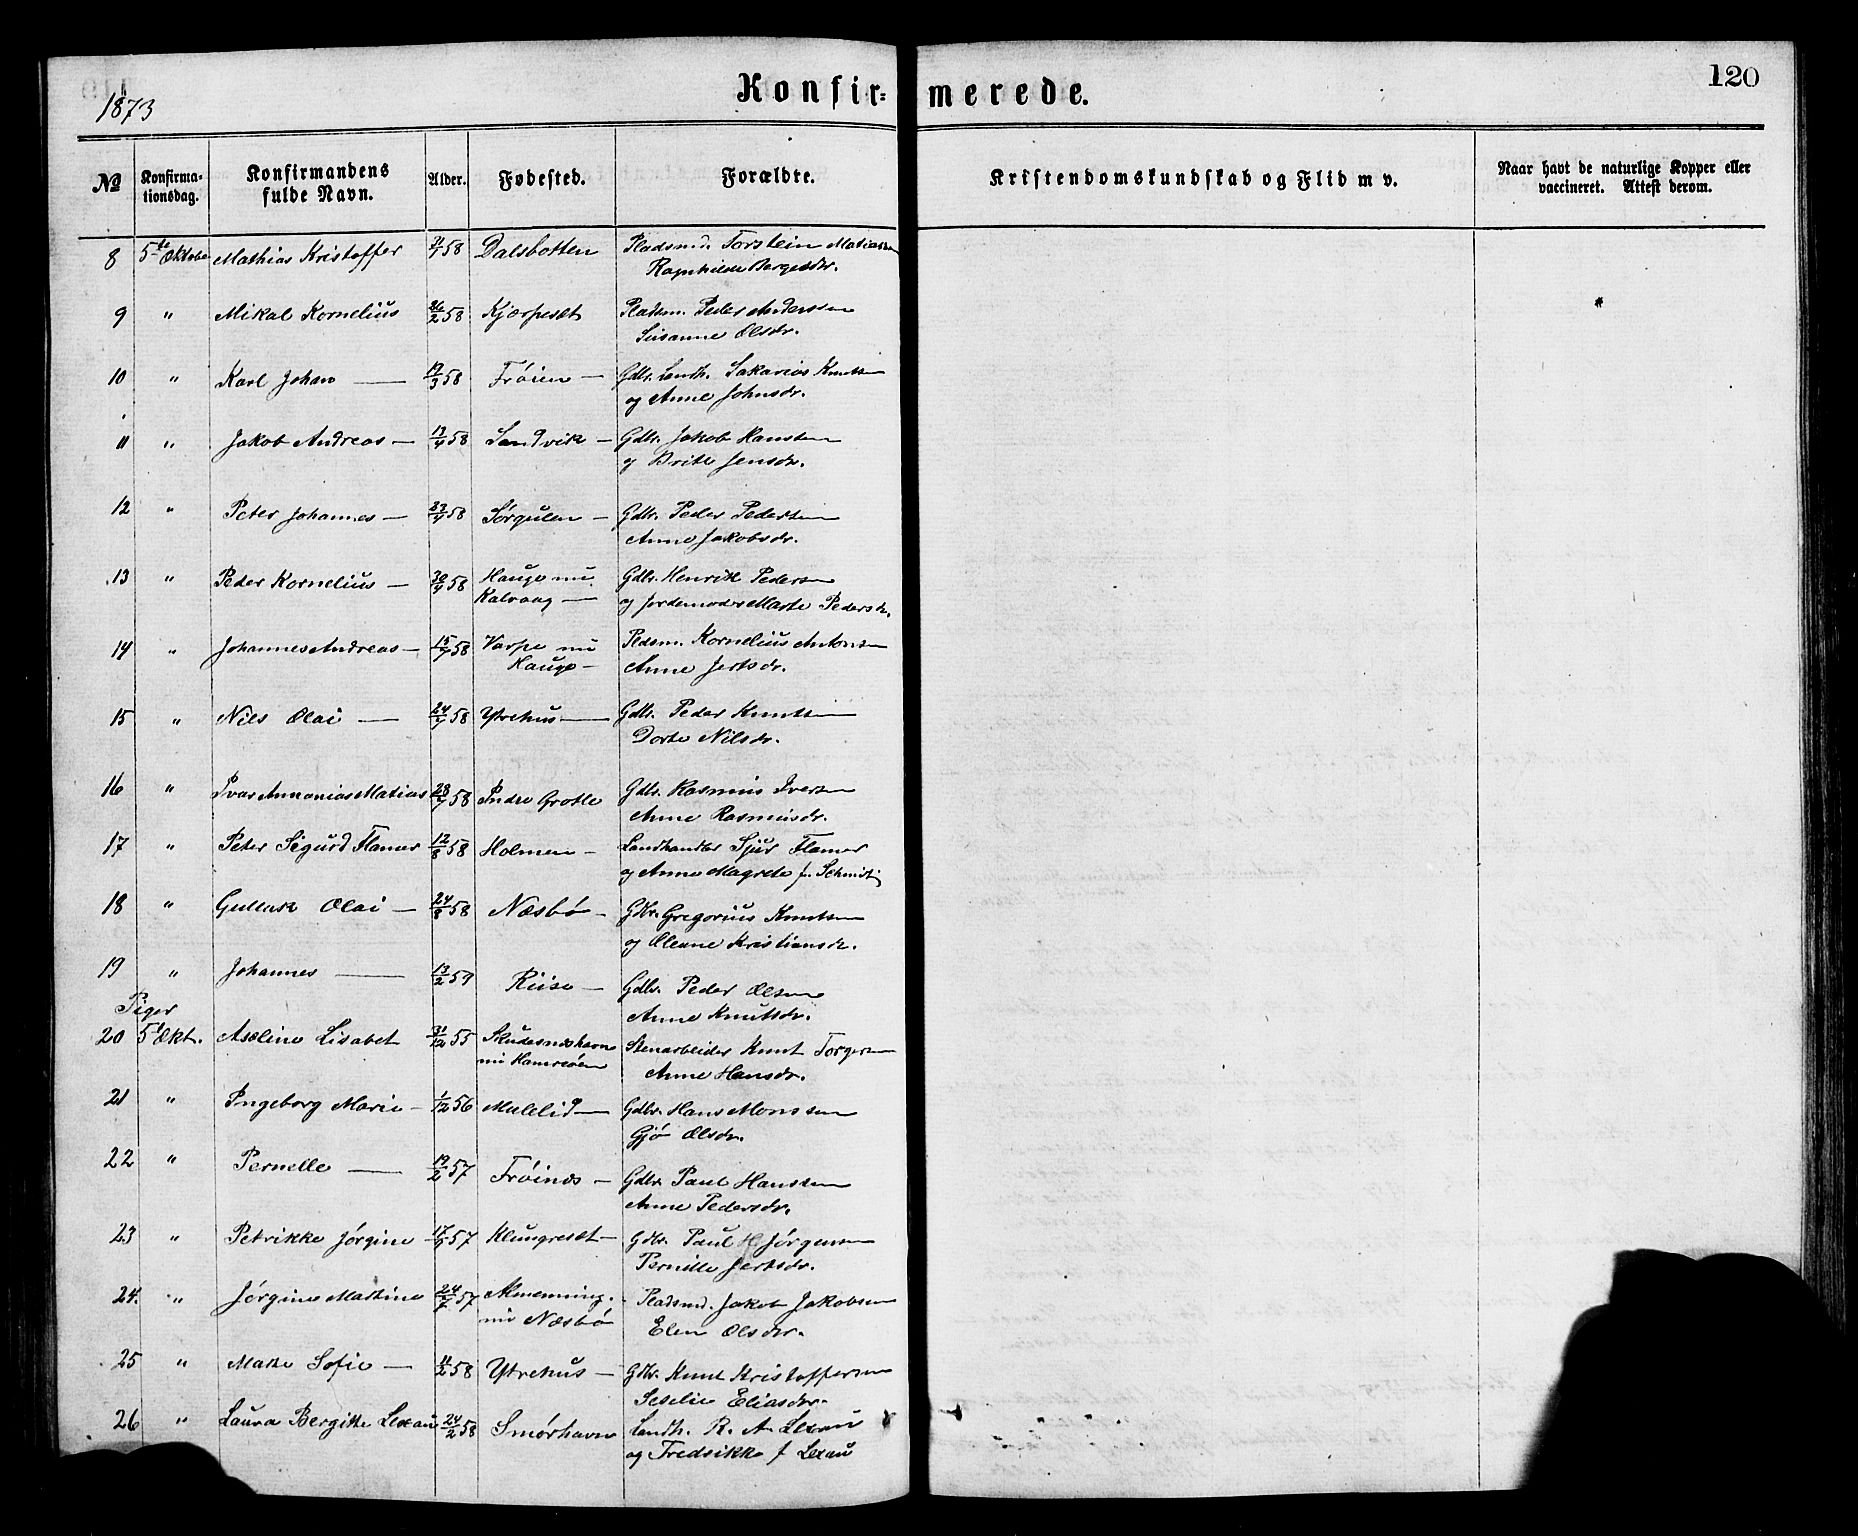 1873
Konfir=merede.
120
No
Konfirma-
tionsdag.
Konfirmandens
fulde Navn.
Alder.
Fødested.
Forældre.
Kristendomskundskab og Flid m v.
Naar havt de naturlige Kopper eller
vaccineret. Attest derom.
8 5te Oktober Mathias Kristoffer 58 Dalsbotten Pladsmd. Torstein Matiassen
Ragnhilde Børgesdr.
9 " Mikal Kornelius 26/2 58 Kjærpesæt Pladsm. Peder Anderssen
Susanne Olsdr.
10 " Karl Johan — 19/3 58 Frøien — Gdbr. Landh. Sakarias Knutsen
og Anne Johnsdr.
11 " Jakob Andreas — 13/4 58 Sandvik — Gdbr. Jakob Hanssen
og Brite Jensdr.
12 " Peter Johannes — 58 Sørgulen — Gdbr. Peder Pedersen
Anne Jakobsdr.
13 " Peder Kornelius — 30/4 58 Hauge nu
Kalvaag — Gdbr. Henrik Pedersen
og Jordemoder Marte Pedersdr.
14 " Johannes Andreas — 15/7 58 Varpe nu
Hauge — Pladsm. Kornelius Antonsen
Anne Jertsdr.
15 " Nils Olai — 24/7 58 Ytrehus — Gdbr. Peder Knutsen
Dorte Nilsdr.
16 " Ivar Annanias Matias 28/7 58 Indre Grotle Gdbr. Rasmus Iversen
Anne Rasmusdr.
17 " Peter Sigurd Flamer 12/8 58 Holmen — Landhandler Sjur Flamer
og Anne Magrete f. Schmidt
18 " Gullak Olai — 24/8 58 Næsbø — Gdbr. Gregorius Knutsen
og Oleane Kristiansdr.
19 " Johannes — 13/2 59 Riise — Gdbr. Peder Olsen
Anne Knutsdr.
Piger
20 5te Okt. Aseline Lisabet 31/12 55 Skudesneshavn
nu Hamrøen Stenarbeider Knut Torgersen
Anne Hansdr.
21 " Ingeborg Marie — 1/12 56 Mulelid — Gdbr. Hans Monssen
Gjø Olsdr.
22 " Pernelle — 19/2 57 Frøinæs — Gdbr. Paul Hanssen
Anne Pedersdr.
23 " Petrikke Jørgine — 57 Klungresæt — Gdbr. Paul H. Jørgensen
Pernille Jertsdr.
24. " Jørgine Martine 24/7 57 Almenning.
nu Næsbø — Pladsmd. Jakob Jakobsen
Elen Olsdr.
25 " Marte Sofie — 11/2 58 Ytrehus — Gdbr. Knut Kristoffersen
Seselie Eliasdr.
26 " Laura Bergitte Lexau 24/2 58 Smørhavn Landh. R. A. Lexau
og Fredrikke f Lexau